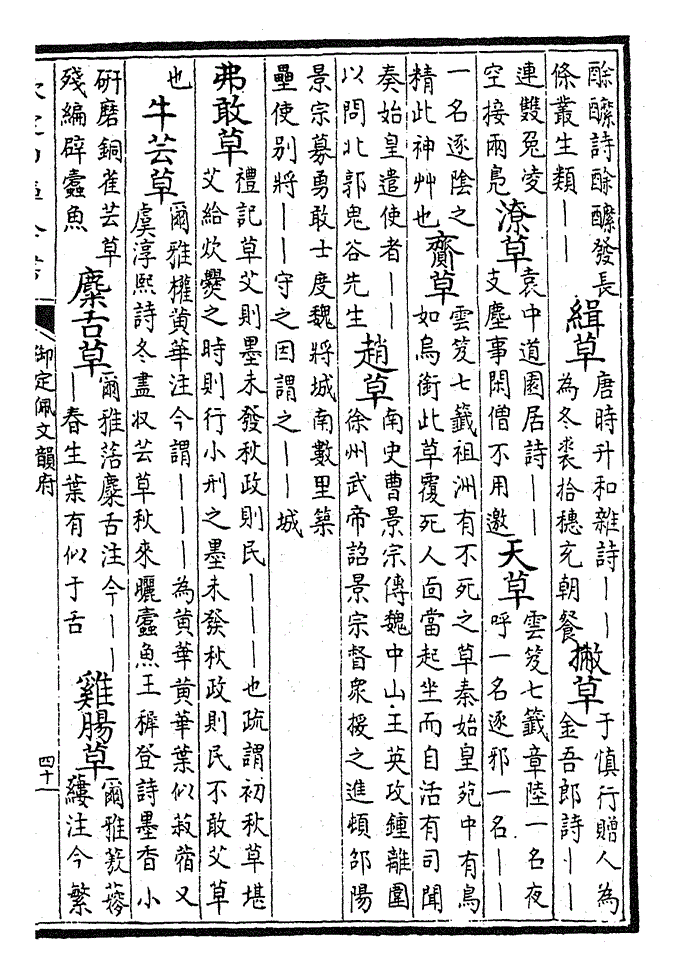 酴醿詩酴醿發長
條叢生類｜｜
緝草
唐時升和雜詩｜｜
為冬裘拾穗充朝餐
撇草
于慎行贈人為
金吾郎詩｜｜
連雙兔凌
空接兩鳧
潦草
袁中道園居詩｜｜
支塵事閑僧不用邀
天草
雲笈七籤章陸一名夜
呼一名逐邪一名｜｜
一名逐陰之
精此神艸也
齎草
雲笈七籤祖洲有不死之草秦始皇苑中有鳥
如烏銜此草覆死人面當起坐而自活有司聞
奏始皇遣使者｜｜
以問北郭鬼谷先生
趙草
南史曹景宗傳魏中山王英攻鍾離圍
徐州武帝詔景宗督衆援之進頓邵陽
景宗募勇敢士度魏將城南數里築
壘使别將｜｜守之因謂之｜｜城
弗敢草
禮記草艾則墨未發秋政則民｜｜｜也疏謂初秋草堪
艾給炊爨之時則行小刑之墨未發秋政則民不敢艾草
也
牛芸草
爾雅權黄華注今謂｜｜｜為黄華黄華葉似菽蓿又
虞淳熙詩冬盡收芸草秋來曬蠹魚王穉登詩墨香小
硏磨銅雀芸草
殘編辟蠹魚
麋舌草
爾雅蒤麋舌注今｜｜
｜春生葉有似于舌
雞腸草
爾雅蔜䕅
縷注今繁
御定佩文韻府
四十一